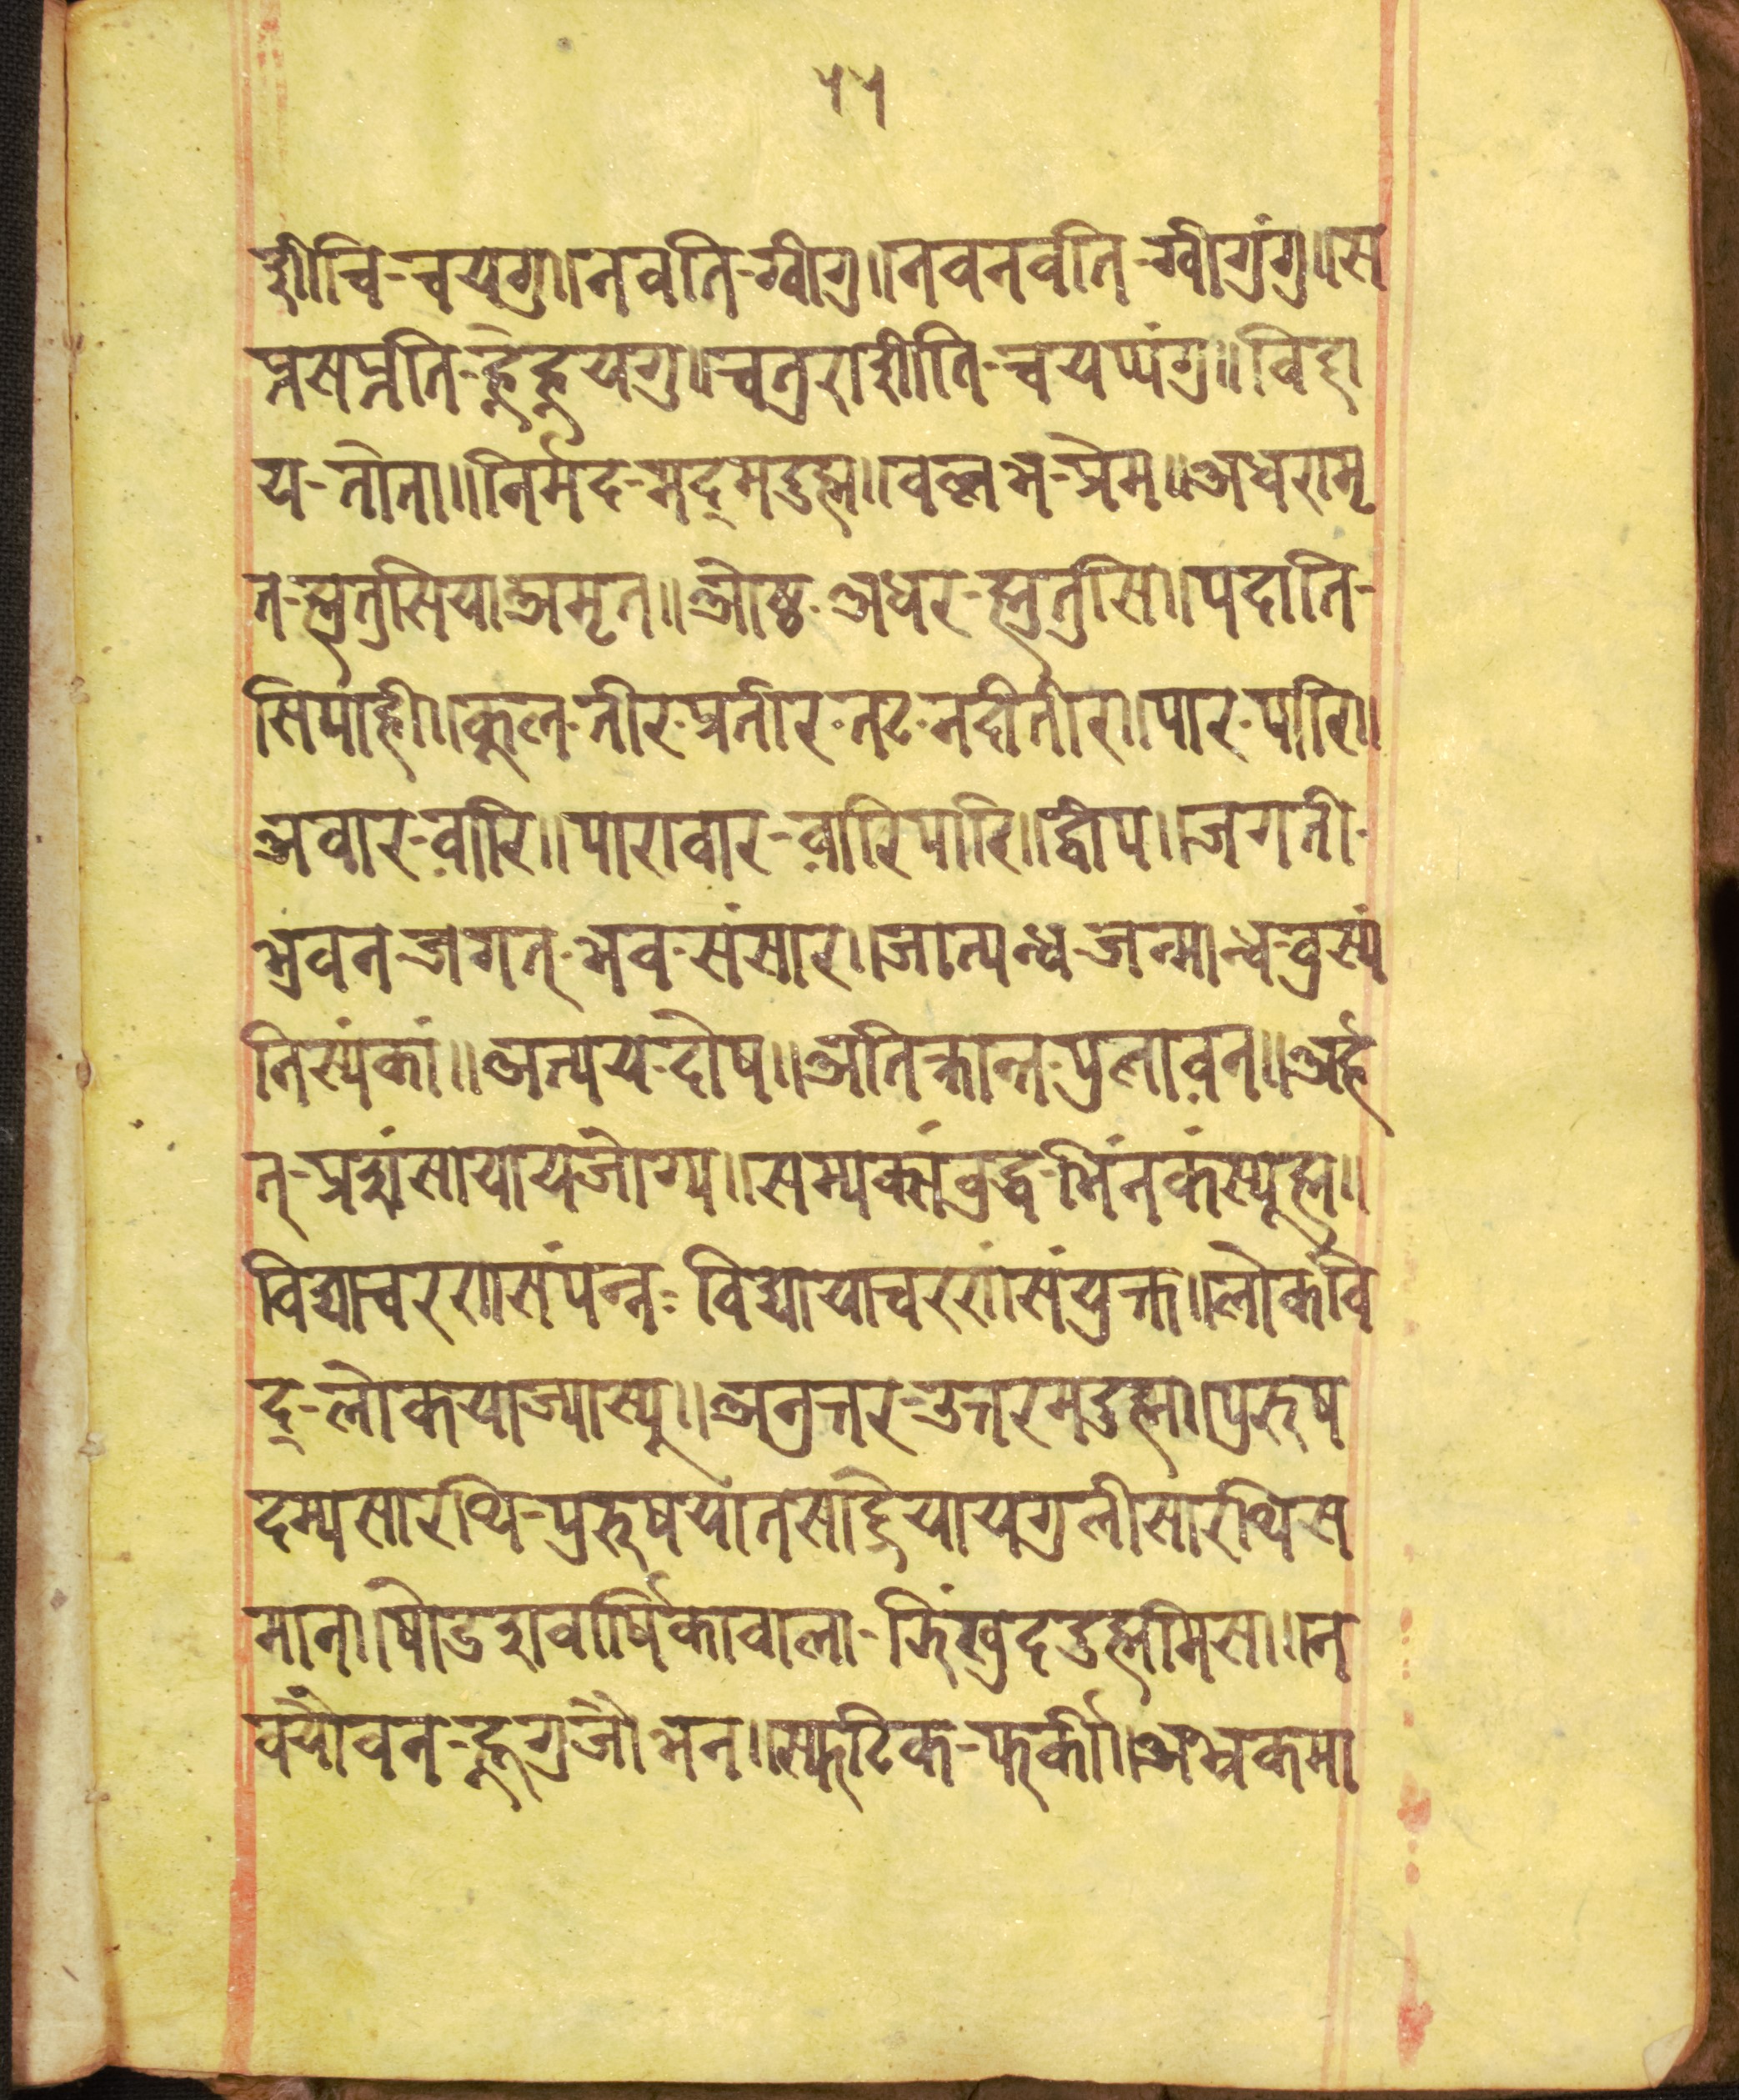 ११
शीचि-चययगु॥नवति-ग्वीगु॥नवनवति-ग्वीगुंगु॥स
प्तसप्तति-ह्नेह्नुयगु॥चतुराशीति-चयप्यंगु॥विहा
य-तोता॥निर्मद-मद्मदुह्म॥वल्लभ-प्रेम॥अधरामृ
त-ह्मुतुसिया अमृत॥ओष्ठ-अधर-ह्मुतुसि॥पदाति-
सिपाही॥कूल-तीर-प्रतीर-तट-नदीतीर॥पार-पारि॥
अवार-वारि॥पारावार-वारिपारि॥द्वीप॥जगती-
भुवन-जगत्-भव-संसार॥जात्यन्ध-जन्मान्ध-वुस्यं
निस्यंकां॥अत्यय-दोष॥अतिक्रान्त-पुलावन॥अर्ह
त्-प्रशंसायायजोग्य॥सम्यक्संवुद्ध-भिंनकंस्यूह्म॥
विद्याचरणसंपन्न-विद्यायाचरणंसंयुक्त॥लोकवि
द्-लोकयाज्यास्यू॥अनुत्तर-उत्तरमदुह्म॥पुरुष
दम्यसारथि-पुरुषयातसाद्देयायगुलीसारथिस
मान॥षोडशवार्षिकावाला-झिंखुददुह्ममिसा॥न
वयौवन-ह्नूगुजौभन॥स्फटिक-फर्की॥अभ्रकमा